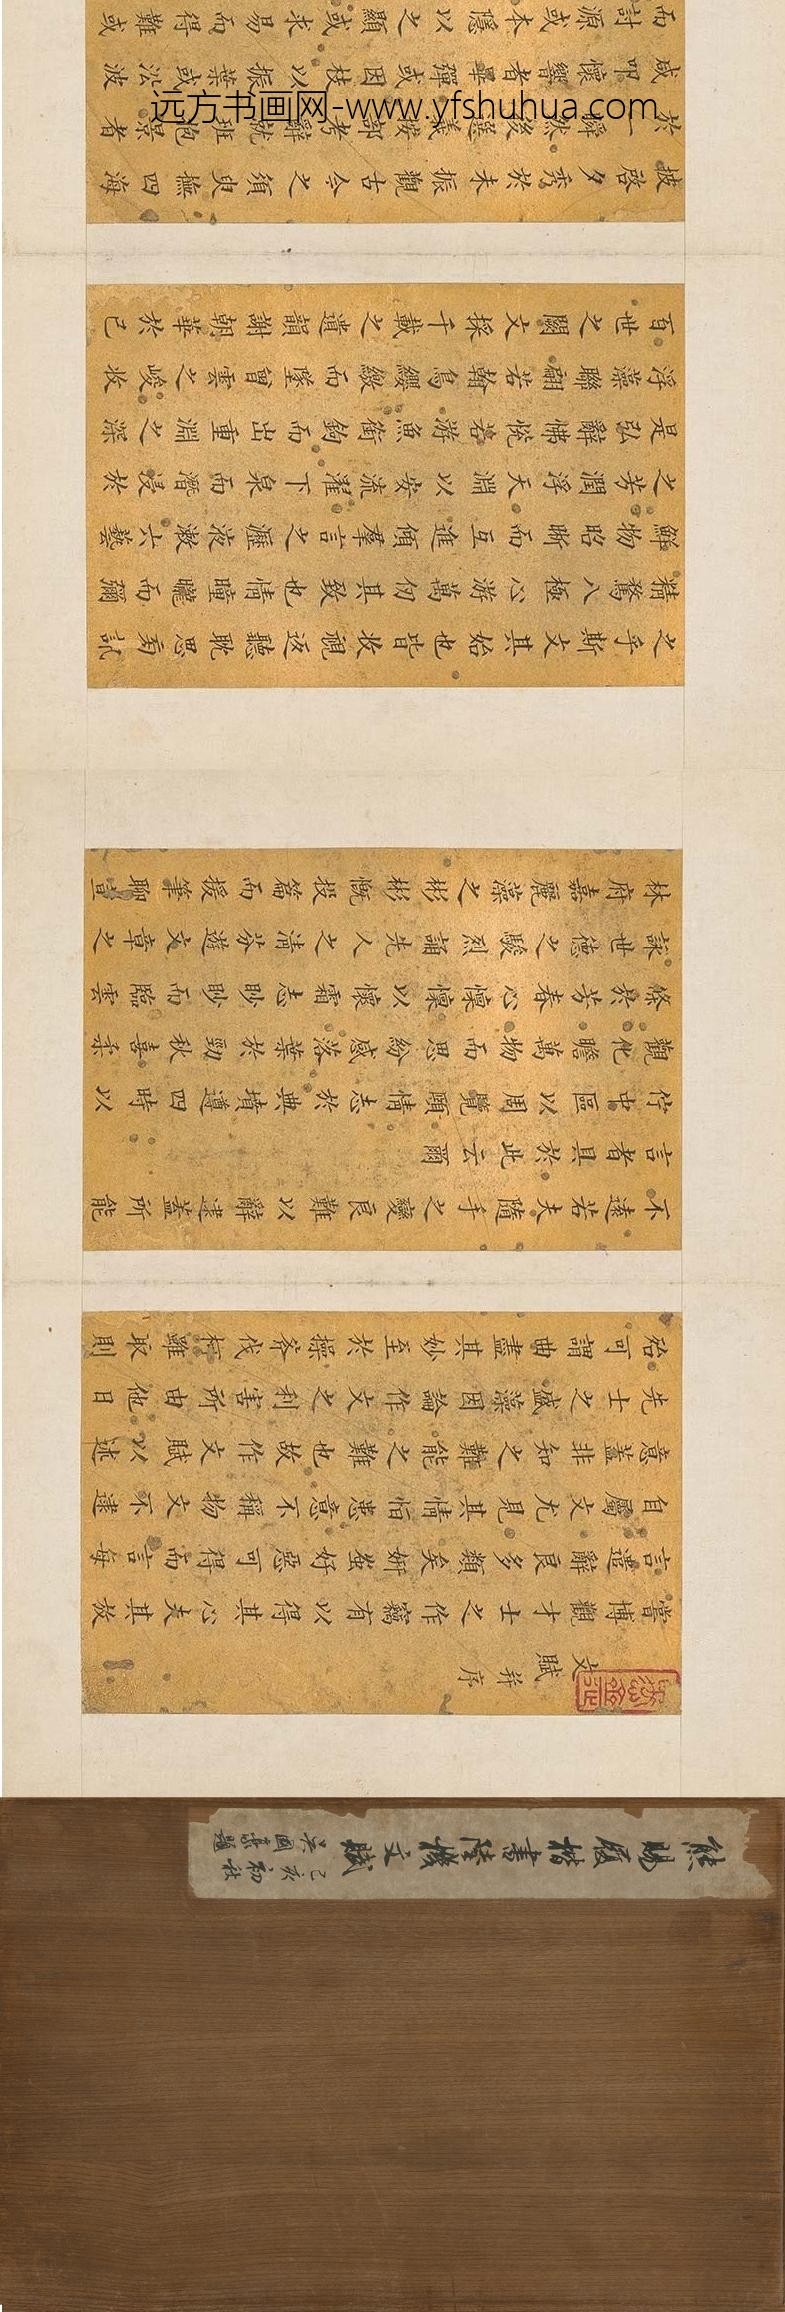 熊賜履楷書陸機文賦
己亥初秋
吳國豪題
文賦并序
嘗博觀才士之作竊有以得其心夫其放
言遣辭良多類矣妍蚩好惡可得而言每
自屬文尤見其情恒患意不稱物文不逮
意蓋非知之難能之難也故作文賦以述
先士之盛藻因論作文之利害所由他日
殆可謂曲盡其妙至於操斧伐柯雖取則
不遠若夫隨手之變良難以辭逮蓋所能
言者具於此云爾
佇中區以周覽頤情志於典墳遵四時以
觀化瞻萬物而思紛感落葉於勁秋喜柔
條於芳春心懍懍以懷霜志眇眇而臨雲
詠世德之駿烈誦先人之清芬遊文章之
林府嘉麗藻之彬彬慨投篇而援筆聊宣
之乎斯文其始也皆收視返聽耽思旁訊
精騖八極心游萬仞其致也情曈曨而彌
鮮物昭晰而互進傾羣言之瀝液漱六藝
之芳潤浮天淵以安流濯下泉而潛浸於
是弘辭怫悅若游魚銜鉤而出重淵之深
浮藻聯翩若翰鳥纓繳而墜曾雲之峻收
百世之闕文採千載之遺韻謝朝華於已
披啓夕秀於未振觀古今之須臾撫四海
於一瞬然後選義按部考辭就班抱景者
咸叩懷響者畢彈或因枝以振葉或沿波
而討源或本隱以之顯或求易而得難或
远方书画网-www.yfshuhua.com